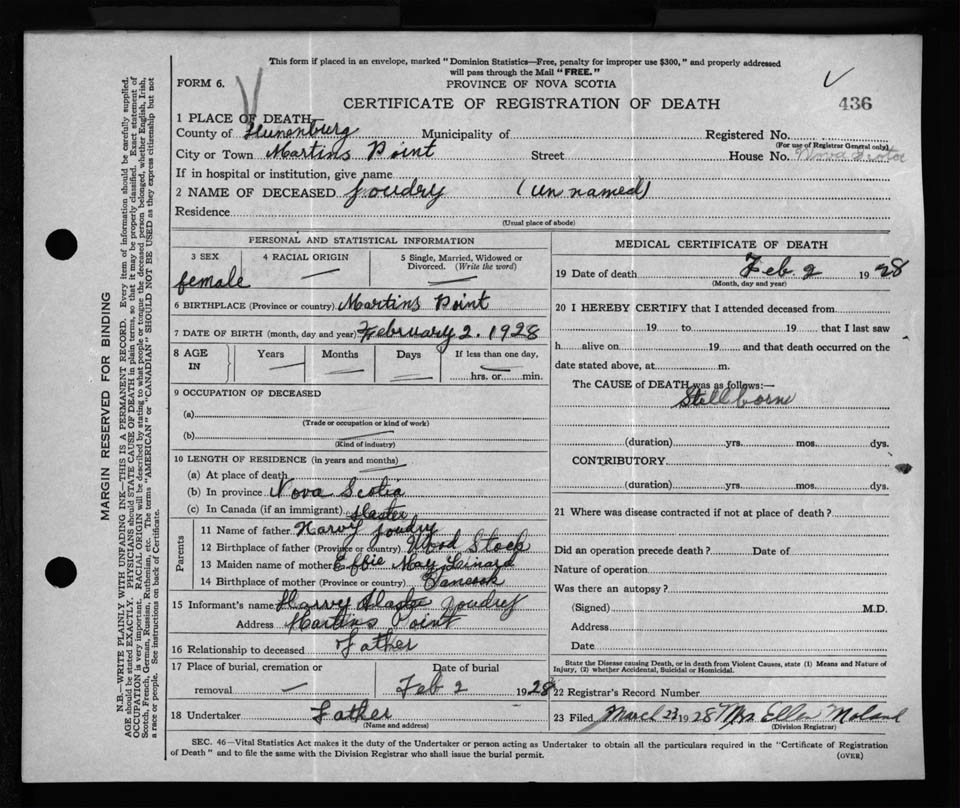 This form if placed in an envelope, marked "Dominion Statistics—Free, penalty for improper use $300," and properly addressed
will pass through the Mail "FREE."
FORM 6.
PROVINCE OF NOVA SCOTIA
CERTIFICATE OF REGISTRATION OF DEATH
436
1 PLACE OF DEATH
County of Lunenburg Municipality of Registered No.
(For use of Registrar General only)
City or Town Martins Point Street House No. Nova Scotia
If in hospital or institution, give name
2 NAME OF DECEASED Joudry (un named)
Residence
(Usual place of abode)
PERSONAL AND STATISTICAL INFORMATION
3 SEX 4 RACIAL ORIGIN 5 Single, Married, Widowed or Divorced. (Write the word)
female —
6 BIRTHPLACE (Province or country) Martins Point
7 DATE OF BIRTH (month, day and year) February 2. 1928
8 AGE IN Years Months Days If less than one day,
hrs. or min.
9 OCCUPATION OF DECEASED
(a)
(Trade or occupation or kind of work)
(b)
(Kind of industry)
10 LENGTH OF RESIDENCE (in years and months)
(a) At place of death
(b) In province Nova Scotia
(c) In Canada (if an immigrant)
Parents
11 Name of father Harvy Joudry
12 Birthplace of father (Province or country) Wood Stock
13 Maiden name of mother Effie May
14 Birthplace of mother (Province or country) Tancook
15 Informant's name Harvy Joudry
Address Martins Point
16 Relationship to deceased Father
17 Place of burial, cremation or removal — Date of burial
Feb 2 1928
18 Undertaker Father
(Name and address)
MEDICAL CERTIFICATE OF DEATH
19 Date of death Feb. 2 1928
(Month, day and year)
20 I HEREBY CERTIFY that I attended deceased from
19 to 19 that I last saw
h alive on 19 and that death occurred on the
date stated above, at m.
The CAUSE of DEATH was as follows:—
Stillborn
(duration) yrs. mos. dys.
CONTRIBUTORY
(duration) yrs. mos. dys.
21 Where was disease contracted if not at place of death?
Did an operation precede death? Date of
Nature of operation
Was there an autopsy?
(Signed) M.D.
Address
Date
State the Disease causing Death, or in death from Violent Causes, state (1) Means and Nature of
Injury, (2) whether Accidental, Suicidal or Homicidal.
22 Registrar's Record Number
23 Filed March 23 1928 Mrs Ellen
(Division Registrar)
SEC. 46—Vital Statistics Act makes it the duty of the Undertaker or person acting as Undertaker to obtain all the particulars required in the "Certificate of Registration
of Death" and to file the same with the Division Registrar who shall issue the burial permit.
(OVER)
MARGIN RESERVED FOR BINDING
N.B.—WRITE PLAINLY WITH UNFADING INK—THIS IS A PERMANENT RECORD. Every item of information should be carefully supplied.
AGE should be stated EXACTLY. PHYSICIANS should STATE CAUSE OF DEATH in plain terms, so that it may be properly classified. Exact statement of
OCCUPATION is very important. RACIAL ORIGIN will be described by stating to what people or tongue the deceased person belonged, whether English, Irish,
Scotch, French, German, Russian, Ruthenian, etc. The terms "AMERICAN" or "CANADIAN" SHOULD NOT BE USED as they express citizenship but not
a race or people. See instructions on back of Certificate.